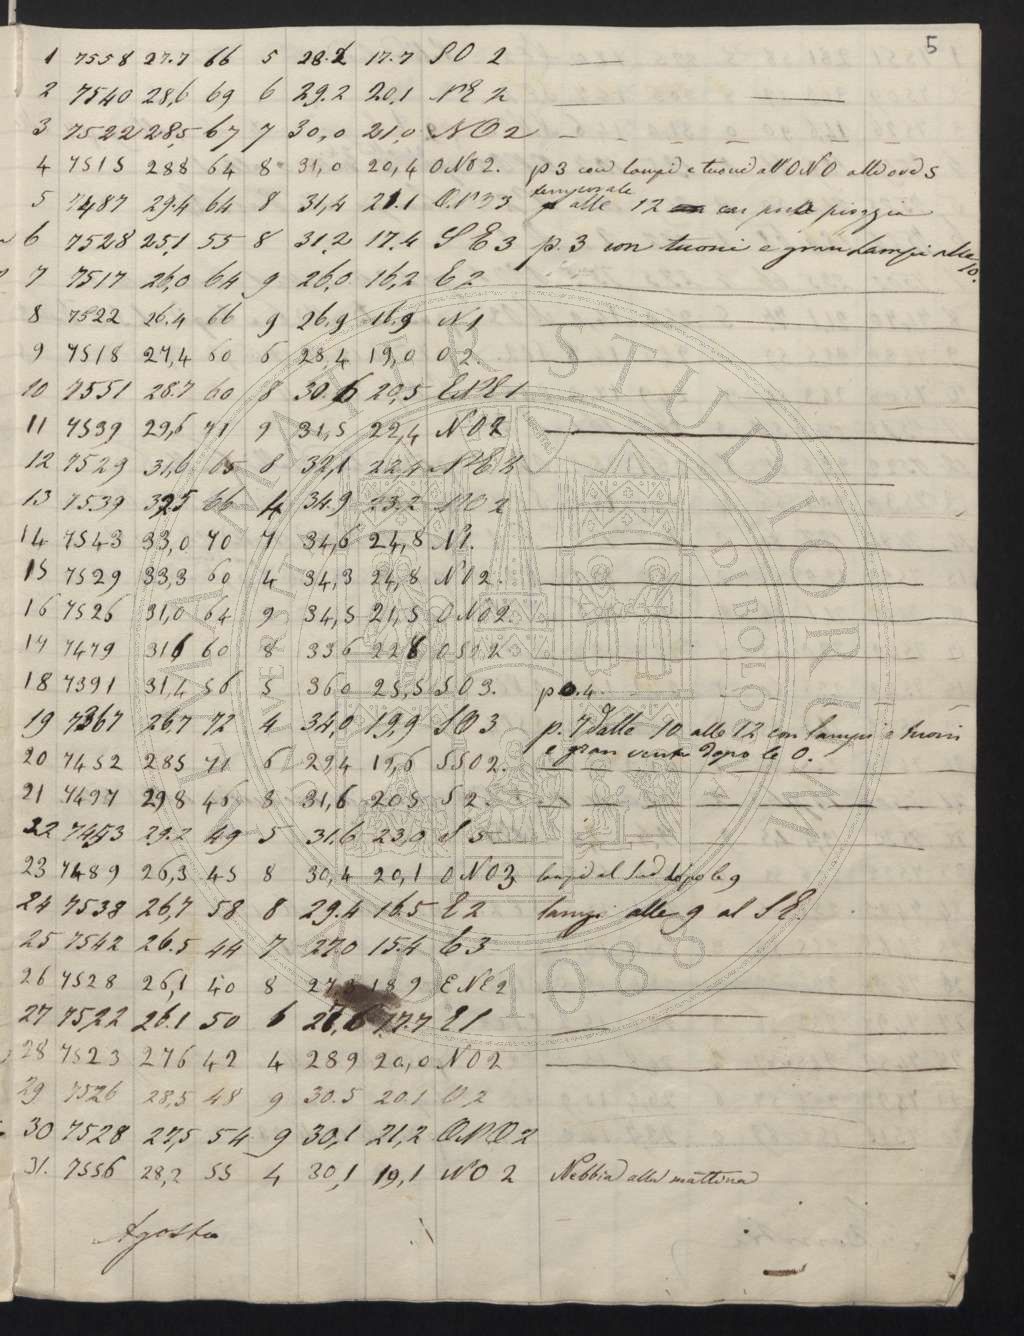 5
1 7558 27.7 66 5 28.2 17.7 SO 2
2 7540 28,6 69 6 29.2 20,1 NE 2
3 7522 28,5 67 7 30,0 21,0 NO 2
4 7515 288 64 8 31,0 20,4 ONO 2. p 3 con lampi e tuoni a NONO alle ore 5
temporale
5 7487 29.4 64 8 31,4 21.1 alle 12 con poca pioggia
6 7528 25,1 55 8 31,2 17.4 SE 3 p. 3 con tuoni e gran lampi alle 10.
7 7517 26,0 64 9 26,0 16,2 E 2
8 7522 26.4 66 9 26.9 16.9 N 1
9 7518 27,4 60 6 28.4 19,0 O 2.
10 7551 28.7 60 8 30.6 20,5 ENE 1
11 7539 29,6 71 9 31,5 22,4 NO 2
12 7529 31,6 65 8 32,1 22,4 NE 2
13 7539 325 66 4 34.9 23.2 NO 2
14 7543 33,0 70 7 34,6 24,8 N 1.
15 7529 33,3 60 4 34,3 24,8 NO 2.
16 7526 31,0 64 9 34,5 21,5 ONO 2.
17 7479 316 60 8 336 228 OSO 2
18 7391 31,4 56 5 360 25,5 SO 3. p 0.4.
19 7367 26,7 72 4 34,0 19,9 SO 3 p. 7 dalle 10 alle 12 con lampi e tuoni
e gran vento dopo le 0.
20 7452 285 71 6 29,4 19,6 SSO 2.
21 7497 298 46 8 31,6 205 S 2.
22 7453 29.2 49 5 31.6 23,0 S
23 7489 26,3 45 8 30,4 20,1 ONO 3 lampi al Sud dopo le 9
24 7538 26,7 58 8 29.4 16.5 E 2 lampi alle 9 al SE.
25 7542 26.5 44 7 27.0 15.4 E 3
26 7528 26,1 40 8 18 9 ENE 2
27 7522 26.1 50 6 27,6 17.7 E 1
28 7523 276 42 4 289 20,0 NO 2
29 7526 28,5 48 9 30.5 20.1 O 2
30 7528 27,5 54 9 30,1 21,2 ONO 2
31. 7556 28,2 55 4 30,1 19,1 NO 2 Nebbia alla mattina
Agosto
ALMA MATER STUDIORUM
UNIVERSITÀ DI BOLOGNA
A.D. 1088